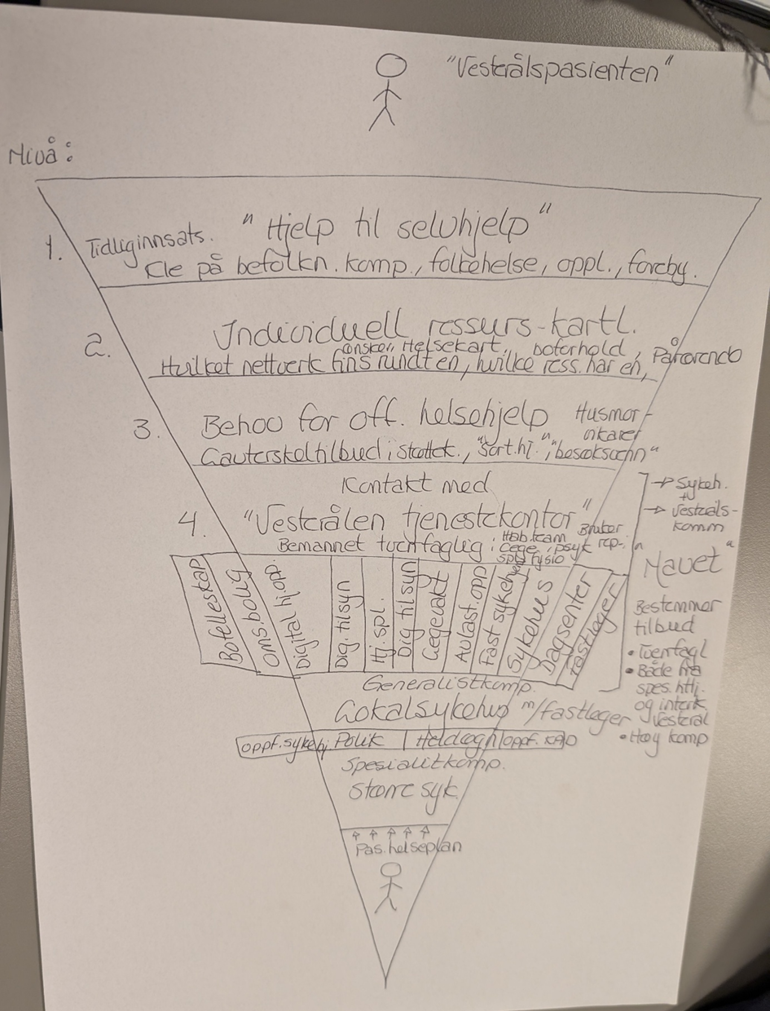 "Vesterålspasienten"
Nivå:
1. Tidliginnsats. "Hjelp til selvhjelp"
Kle på befolkn. komp., folkehelse, oppl., foreby.
2. Individuell ressurs-kartl.
ønsker, Helsekart, boforhold, Pårørende
Hvilket nettverk fins rundt en, hvilke ress. har en,
3. Behov for off. helsehjelp Husmor-
vikarer
Lavterskeltilbud i støttek., "Sort.hj.", "besøksvenn"
Kontakt med
4. "Vesterålen tjenestekontor"
Bemannet tverrfaglig: Hab.team Bruker
Lege, psyk rep.
fysio
→ Sykeh.
→ Vesteråls-
komm
"Navet"
Bestemmer
tilbud
• Tverrfagl
• Både fra
spes.htj.
og interk
Vesterål
• Høy komp
Bofelleskap
Omsbolig
Digital hj.opp.
Dig. tilsyn
Hj. spl.
Dig tilsyn
Legevakt
Avlast. opp
Fast sykehj
Sykehus
Dagsenter
Fastleger
Generalistkomp.
Lokalsykehus m/fastleger
oppf. sykehj. Polik Heldøgn oppf. KAD
Spesialitkomp.
Større syk.
Pas. helseplan